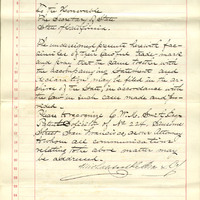 To the Honorable
The Secretary of State
State of California.
The undersigned presents herewith fac-
similes of their lawful trade-mark
and pray that the same together with
the accompanying statement and
declaration may be filed in the ar-
chives of the State, in accordance with
the law in such case made and pro-
vided.
Please recognize
of No. 224
Street San Francisco as our Attorney
to whom all communications
relating to the above matter may
be addressed.